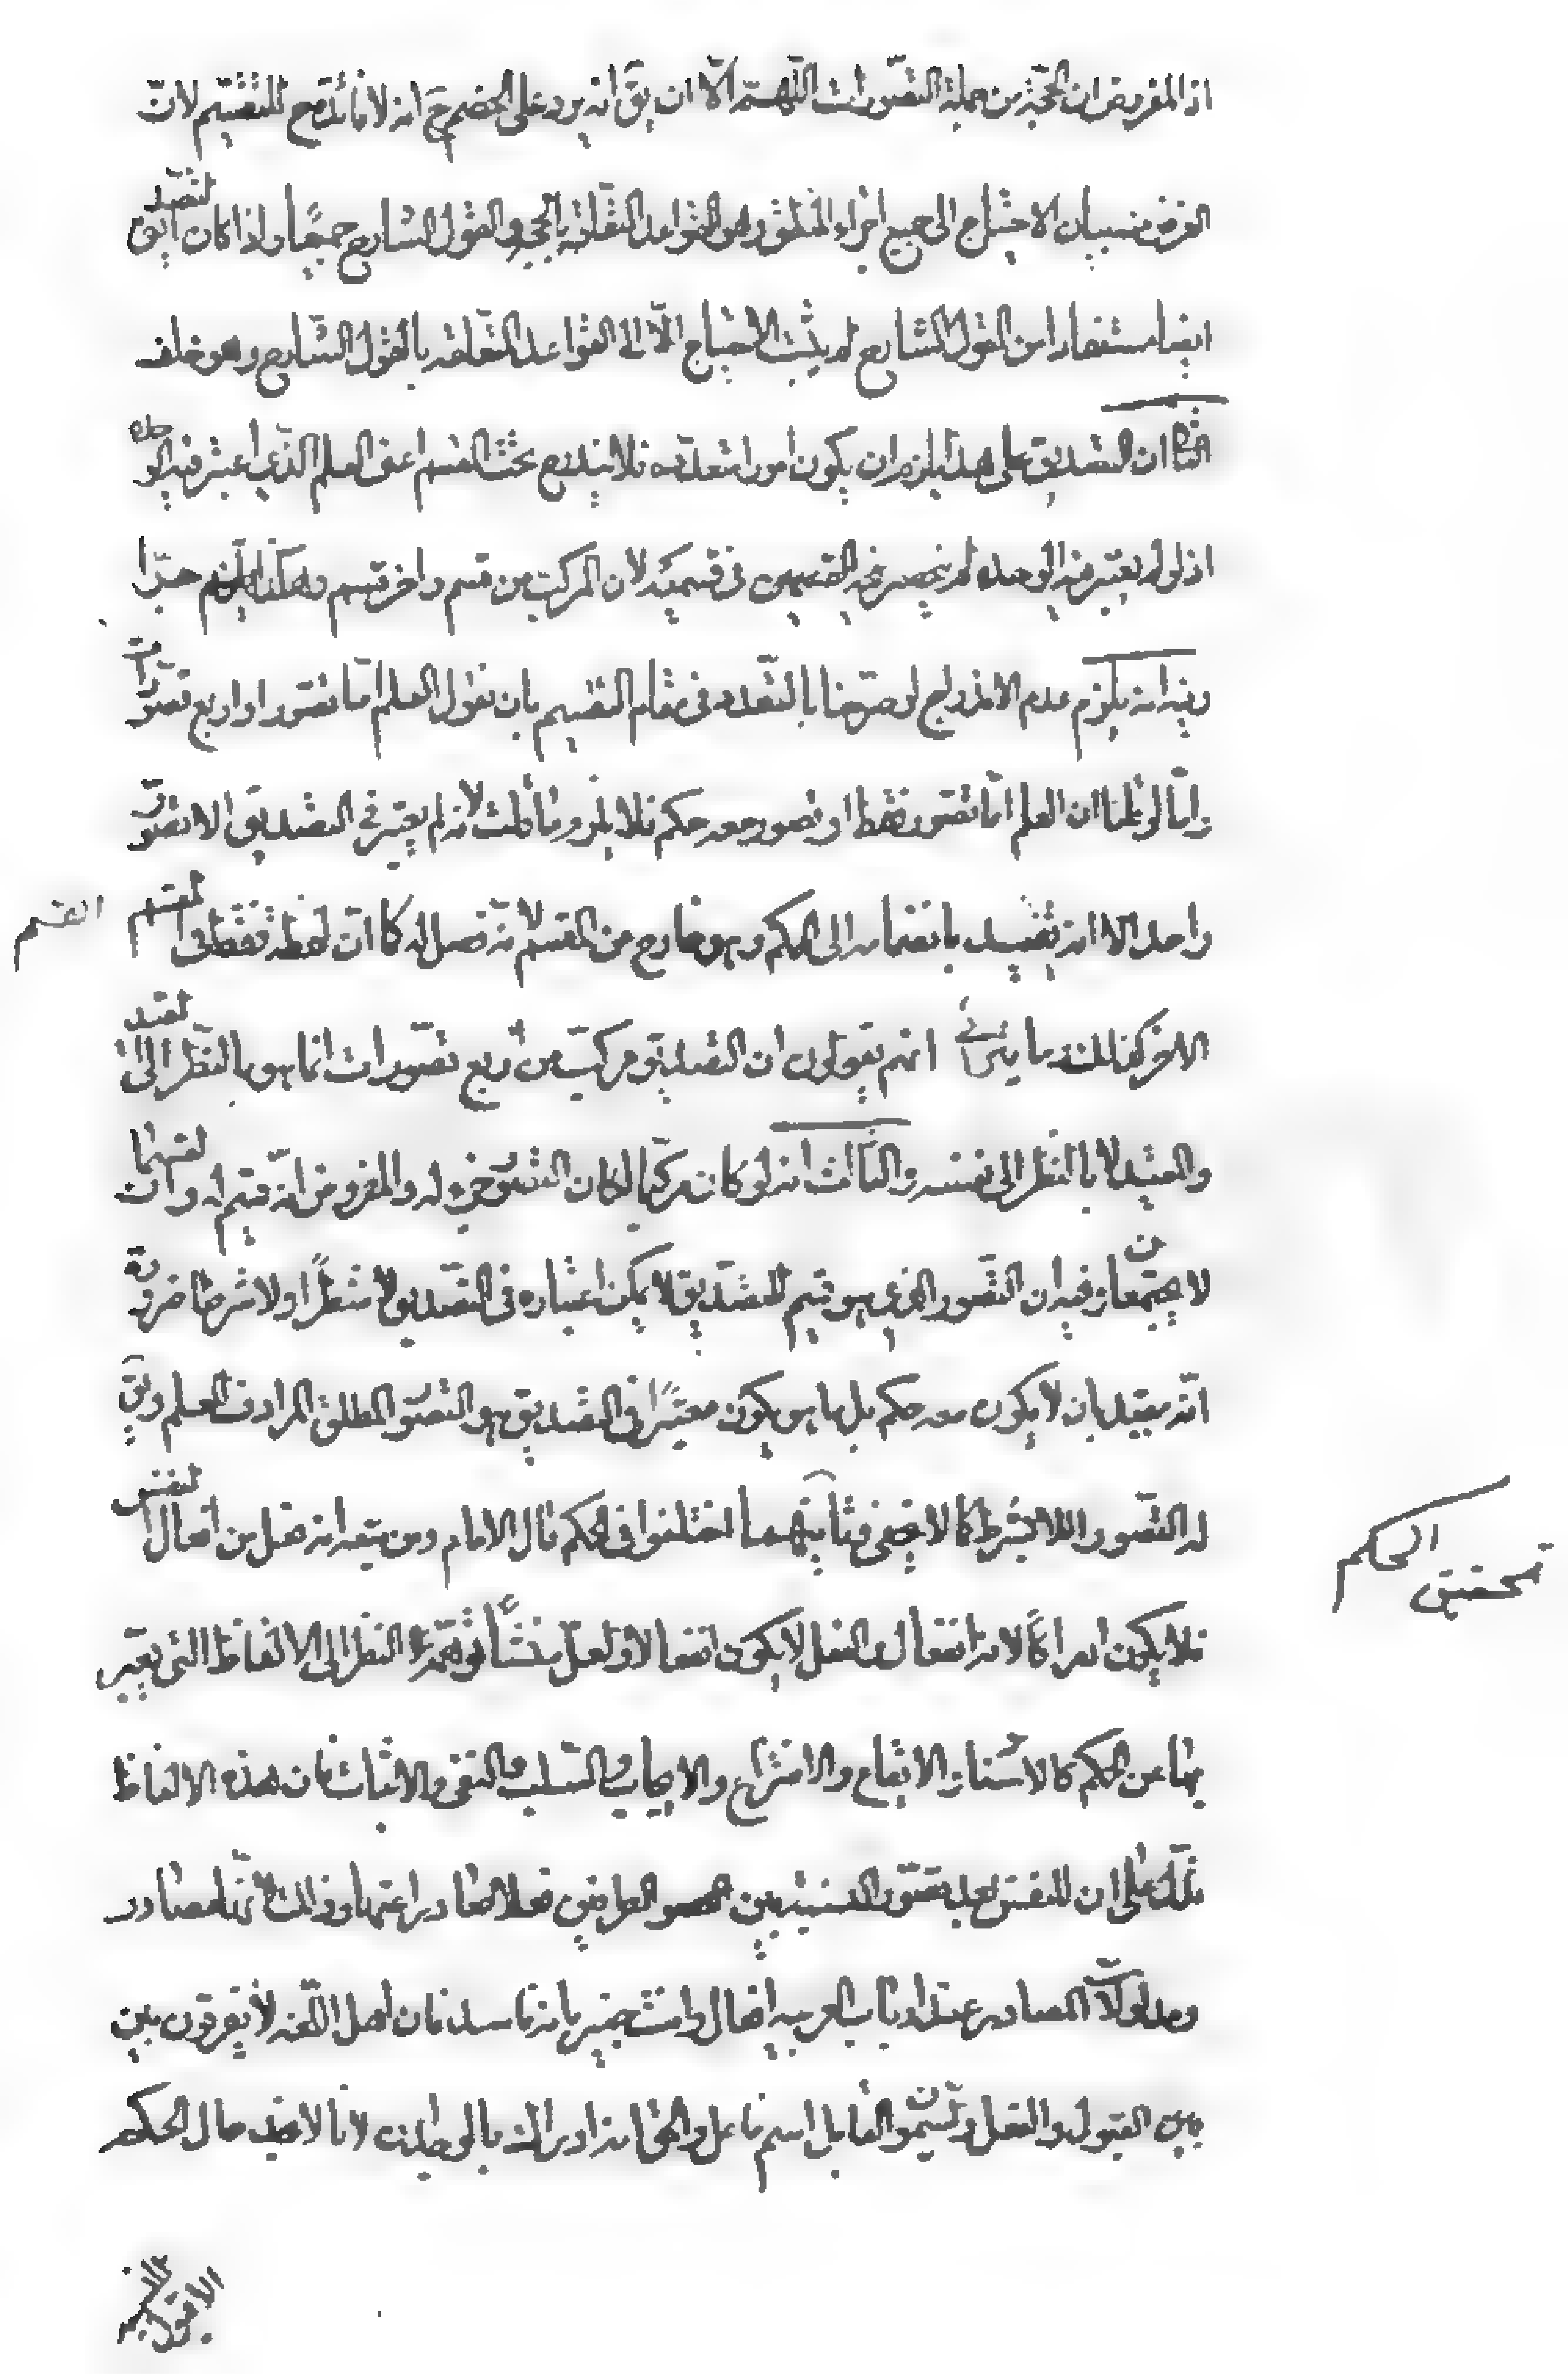 اذ المفروض ان الحجة من جملة التصورات اللهم الّا ان يقَ انه يرد على الخصم حَ انه لا فائدة ح للتقسيم لانّ
الغرض منه بيان الاحتياج الى جميع اجزاء المنطق وهو القواعد المتعلقة بالحجة والقول الشارح جميعًا واذا كان التصديق
ايضا مستفادا من القول الشارح لم يثبت الاحتياج الّا الى القواعد المتعلقة بالقول الشارح وهو خلف
الثانى ان التصديق على هذا يلزم ان يكون امورا متعدّده فلا يندرج تحت المقسم اعنى العلم الذي اعتبر فيه الوحده
اذ لو لم يعتبر فيه الوحده لم ينحصر فى قسميه لان المركب من قسم واخر قسم وهكذا جدّا
وفيه انه يلزم عدم الاندراج لو صرّحنا بالتعدد فى مقام التقسيم بان نقول العلم امّا تصور او اربع تصوّرات
وامّا لو قلنا ان العلم امّا تصور فقط او تصور معه حكم فلا يلزم ما قلت لانه لم يعتبر فى التصديق الا تصوّر
واحد الا انه يقيد بانضمامه الى الحكم وهو خارج من القسم لانّه فصل له كما انّ لفظة فقط فى المقسم القسم
الاخر كذلك انهم يقولون ان التصديق مركب من أربع تصوّرات انما هو بالنّظر الى القيد
والمقيد لا بالنظر الى نفسه والثالث انه لو كان مركبا لكان التصوّر جزء له والمفروض انّه قسيم له وانّ القسيمان
لا يجتمعان وفيه ان التصور الذي هو قسيم للتصديق لا يمكن اعتباره فى التصديق لا شطرًا ولا شرطا ضرورة
انّه مقيد بان لا يكون معه حكم بل ما هو يكون معتبرًا فى التصديق هو التصوّر المطلق المرادف للعلم ويقَ
له التصور اللا بشرط كما لا يخفى اختلفوا فى الحكم قال الامام ومن تبعه انه فعل من افعال النفس
فلا يكون ادراكًا لانه انفعال والفعل لا يكون انفعالا ولعلّ منشأ توهّمه النظر الى الالفاظ التى يعبّر
بها عن الحكم كالاسناد والايقاع والانتزاع والايجاب والسلب والنفى والاثبات فان هذه الالفاظ
تدلّ على ان للنفس بعد تصوّر النسبة بين الطرفين فعلا صادرا عنها وذلك لأنّها مصادر
ومدلولات المصادر عند ارباب العربيه افعال وانت خبير بانه فاسد فان اهل اللّغه لا يفرقون بين
بين القبول والفعل ويسمّون القابل اسم فاعل والحق انه ادراك بالوجدان لانا لا نجد حال الحكم
تحقيق الحكم
الا قبول